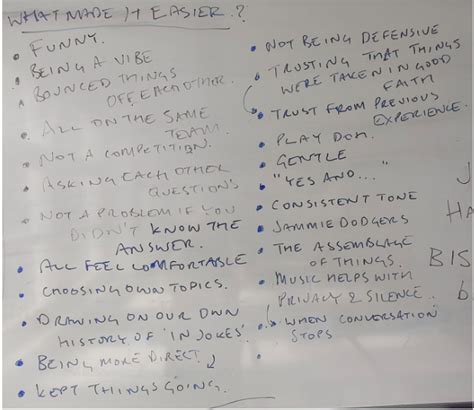 WHAT MADE IT EASIER.?
• FUNNY.
• BEING A VIBE
• BOUNCED THINGS
OFF EACH OTHER.
• ALL ON THE SAME
TEAM.
• NOT A COMPETITION.
• ASKING EACH OTHER
QUESTIONS
• NOT A PROBLEM IF YOU
DIDN'T KNOW THE
ANSWER.
• ALL FEEL COMFORTABLE
• CHOOSING OWN TOPICS.
• DRAWING ON OUR OWN
HISTORY OF 'IN JOKES'.
• BEING MORE DIRECT
• KEPT THINGS GOING.
• NOT BEING DEFENSIVE
• TRUSTING THAT THINGS
WERE TAKEN IN GOOD
FAITH
• TRUST FROM PREVIOUS
EXPERIENCE.
• PLAY DOH.
• GENTLE
• "YES AND..."
• CONSISTENT TONE
• JAMMIE DODGERS
• THE ASSEMBLAGE
OF THINGS.
• MUSIC HELPS WITH
PRIVACY & SILENCE.
• WHEN CONVERSATION
STOPS
J
HA
BIS
b